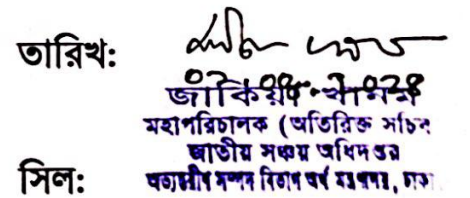 তারিখ:
জাকিয়া খানম
মহাপরিচালক (অতিরিক্ত সচিব
জাতীয় সঞ্চয় অধিদপ্তর
সিল:
অভ্যন্তরীণ সম্পদ বিভাগ অর্থ মন্ত্রণালয়, ঢাকা